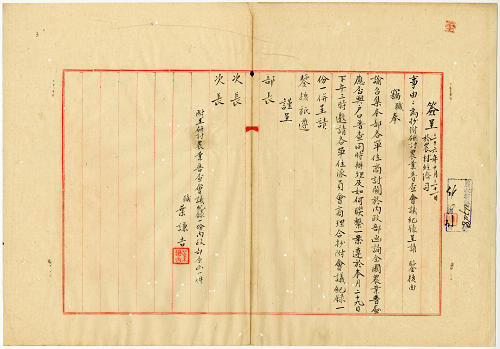 簽呈 三十六年十月三十一日
於農村經濟司
事由：為抄附研討農業普查會議紀錄呈請 鑒核由
竊職奉
諭召集本部各單位商討關於內政部函詢全國農業普查
應否與戶口普查同時辦理及如何聯繫一案遵於本月二十九日
下午三時邀請各單位派員會商理合抄附會議紀錄一
份一併呈請
鑒核祗遵
謹呈
部長
次長
次長
附呈研討農業普查會議紀錄一份內政部原函一件
職 葉謙吉